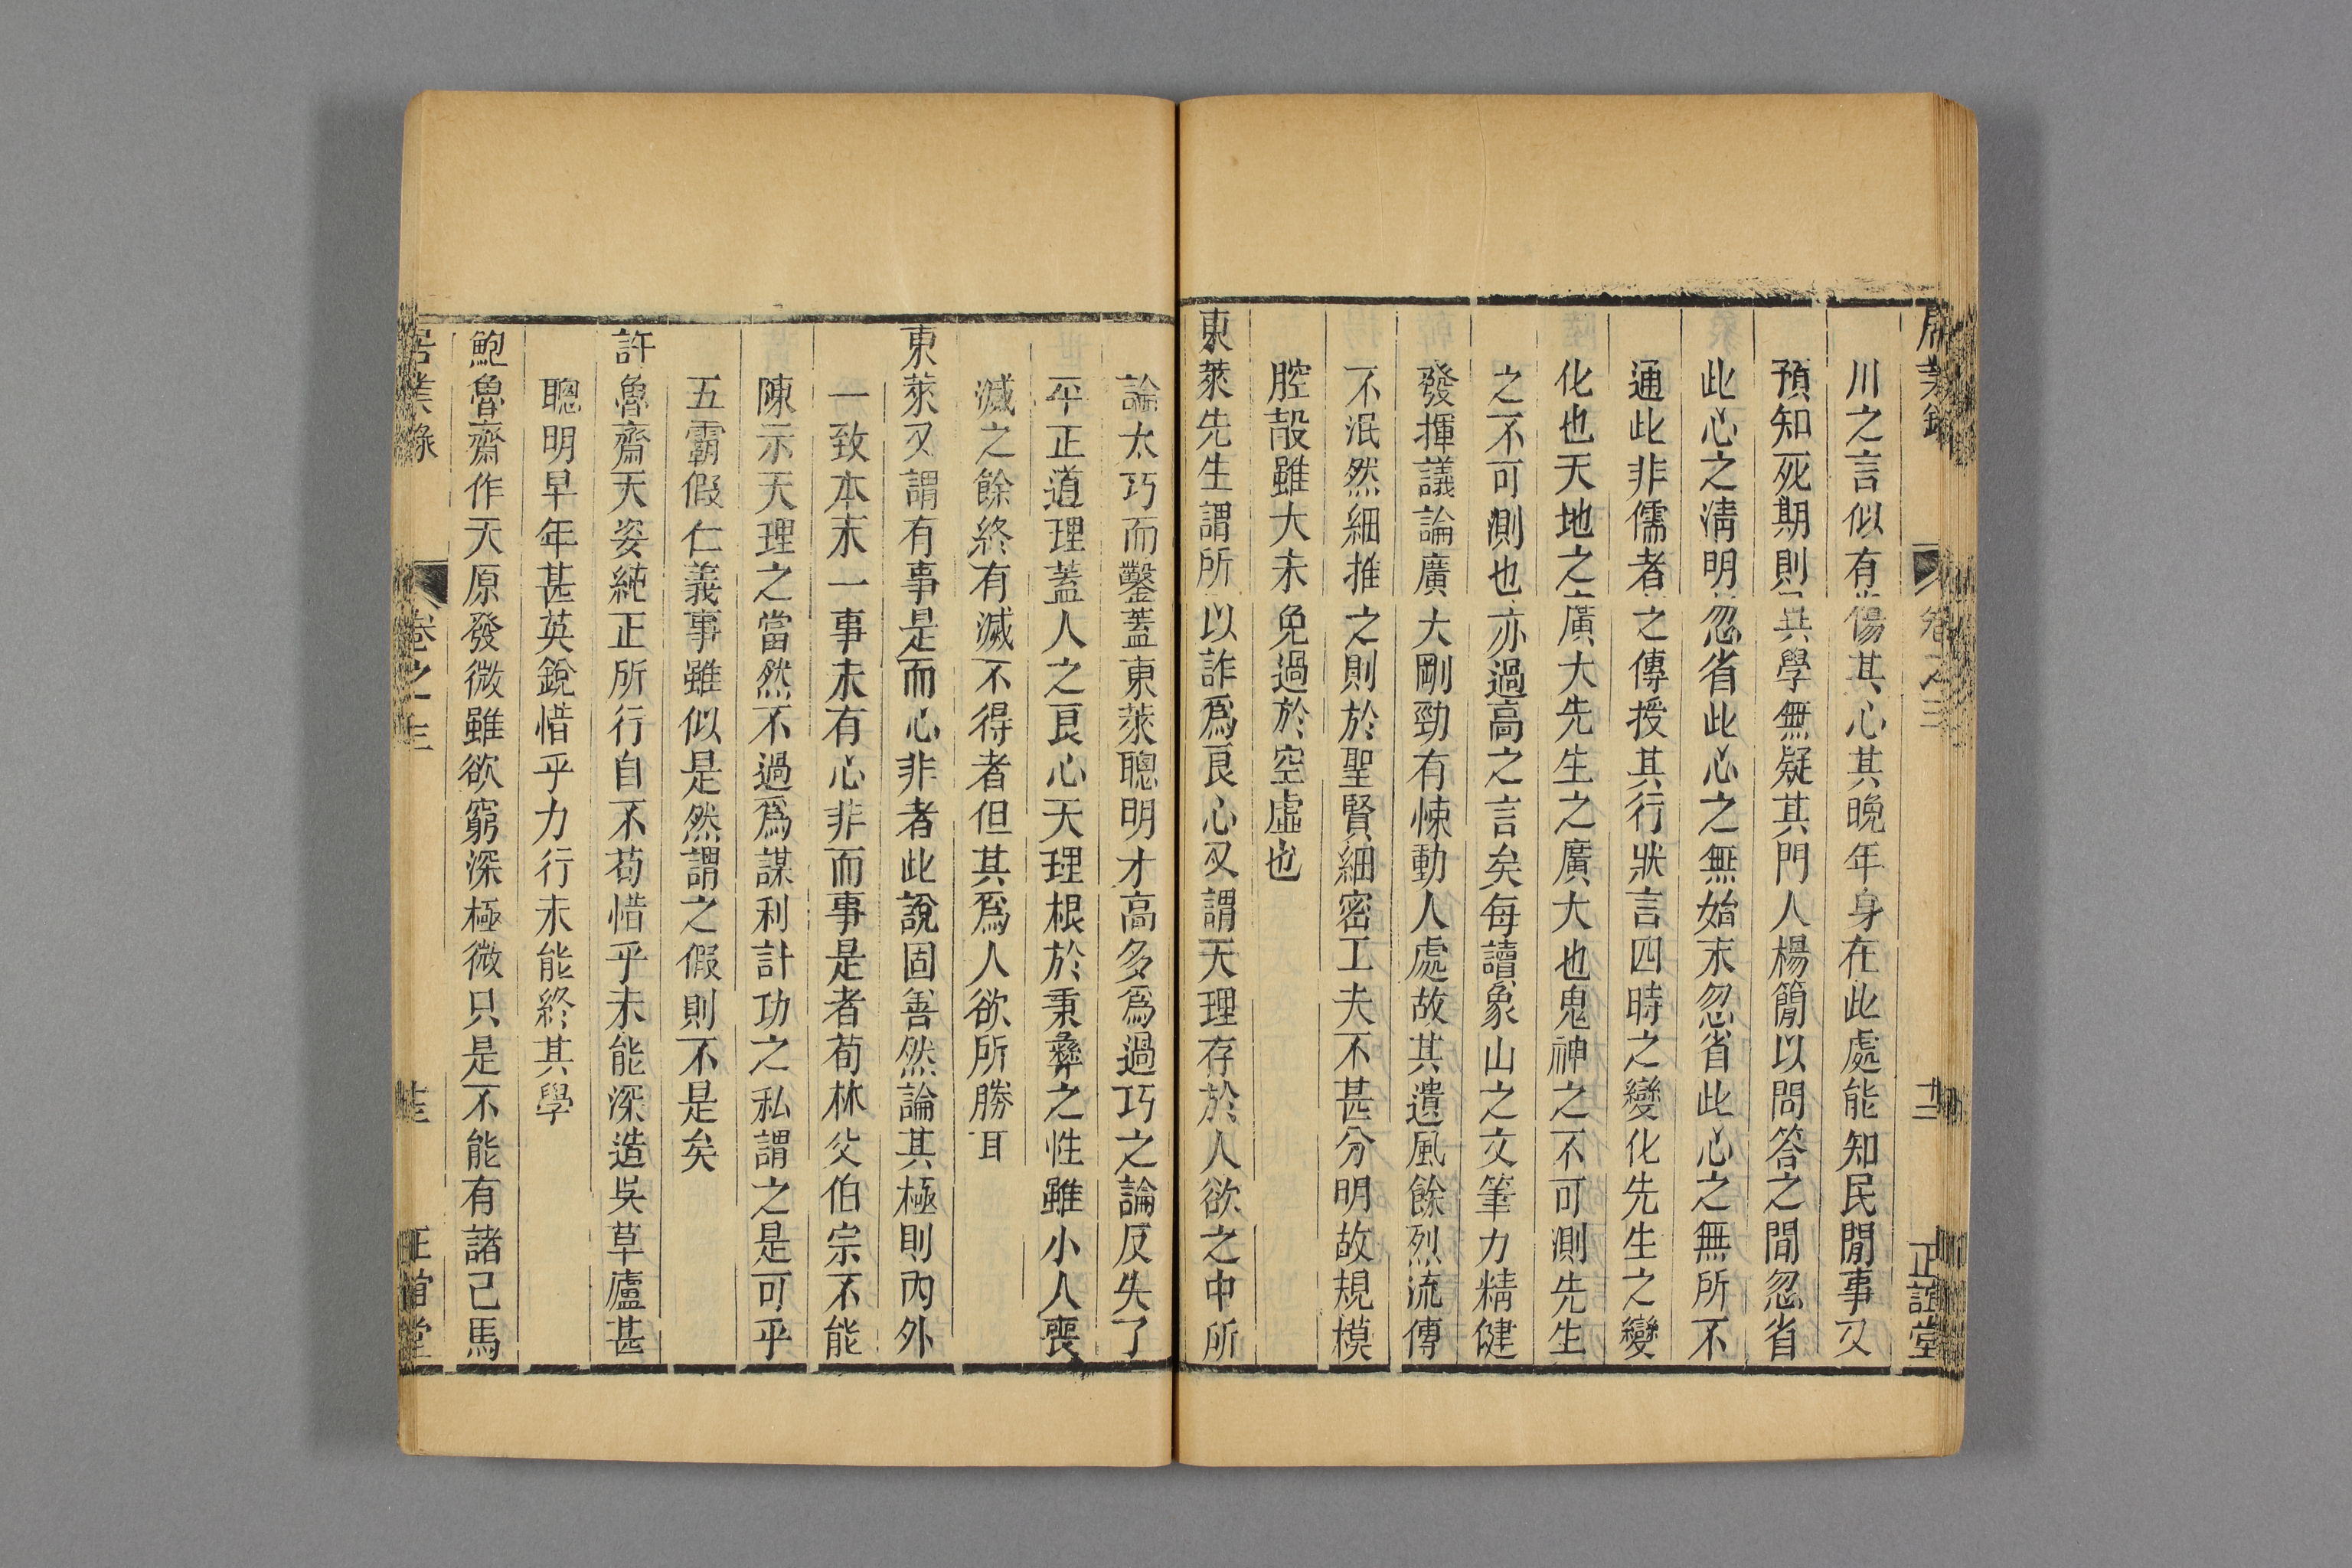 居業錄 卷之三 十二 正誼堂
川之言似有傷其心其晚年身在此處能知民間事又
預知死期則異學無疑其門人楊簡以問答之間忽省
此心之清明忽省此心之無始末忽省此心之無所不
通此非儒者之傳授其行狀言四時之變化先生之變
化也天地之廣大先生之廣大也鬼神之不可測先生
之不可測也亦過高之言矣每讀象山之文筆力精健
發揮議論廣大剛勁有悚動人處故其遺風餘烈流傳
不泯然細推之則於聖賢細密工夫不甚分明故規模
腔殻雖大未免過於空虛也
東萊先生謂所以詐爲良心又謂天理存於人欲之中所
論太巧而鑿蓋東萊聰明才高多爲過巧之論反失了
平正道理蓋人之良心天理根於秉彝之性雖小人喪
滅之餘終有滅不得者但其爲人欲所勝耳
東萊又謂有事是而心非者此說固善然論其極則內外
一致本末一事未有心非而事是者荀林父伯宗不能
陳示天理之當然不過爲謀利計功之私謂之是可乎
五霸假仁義事雖似是然謂之假則不是矣
許魯齋天姿純正所行自不苟惜乎未能深造吳草廬甚
聰明早年甚英銳惜乎力行未能終其學
鮑魯齋作天原發微雖欲窮深極微只是不能有諸己馬
居業錄 卷之三 正誼堂